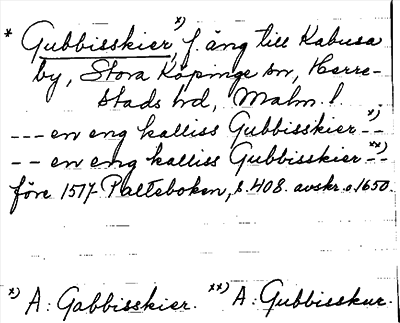 * Gubbisskier, x) f. äng till Kabusa
by, Stora Köpinge sn, Herre-
stads hd, Malm. l.
--- en eng kalliss Gubbisskier x) --
-- en eng kalliss Gubbisskier xx) --
före 1517 Palteboken, s. 408. avskr. o. 1650.
x) A: Gabbisskier. xx) A: Gubbisskur.